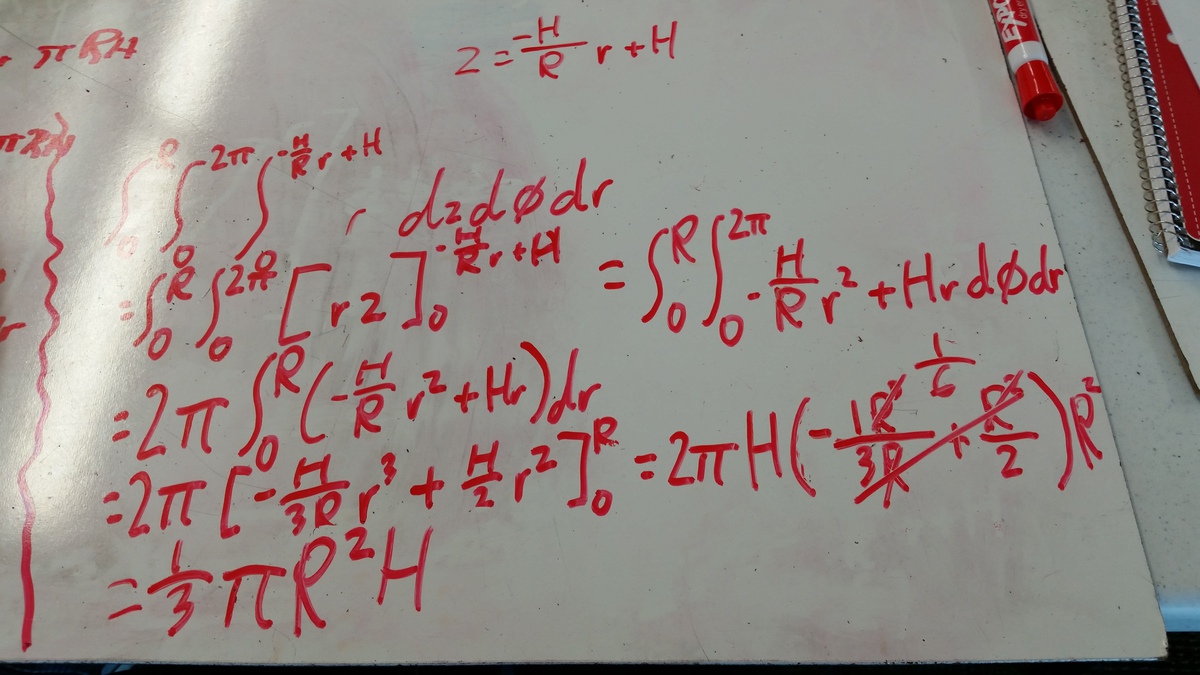 πRH
z = -H/R r + H
πRH
∫₀^R ∫₀^2π ∫₀^(-H/R r + H) r dz dϕ dr
= ∫₀^R ∫₀^2π [rz]₀^(-H/R r + H) = ∫₀^R ∫₀^2π -H/R r² + Hr dϕ dr
= 2π ∫₀^R (-H/R r² + Hr) dr
= 2π [-H/3R r³ + H/2 r²]₀^R = 2πH( 1/6 )R²
= 1/3 πR²H
EXPO